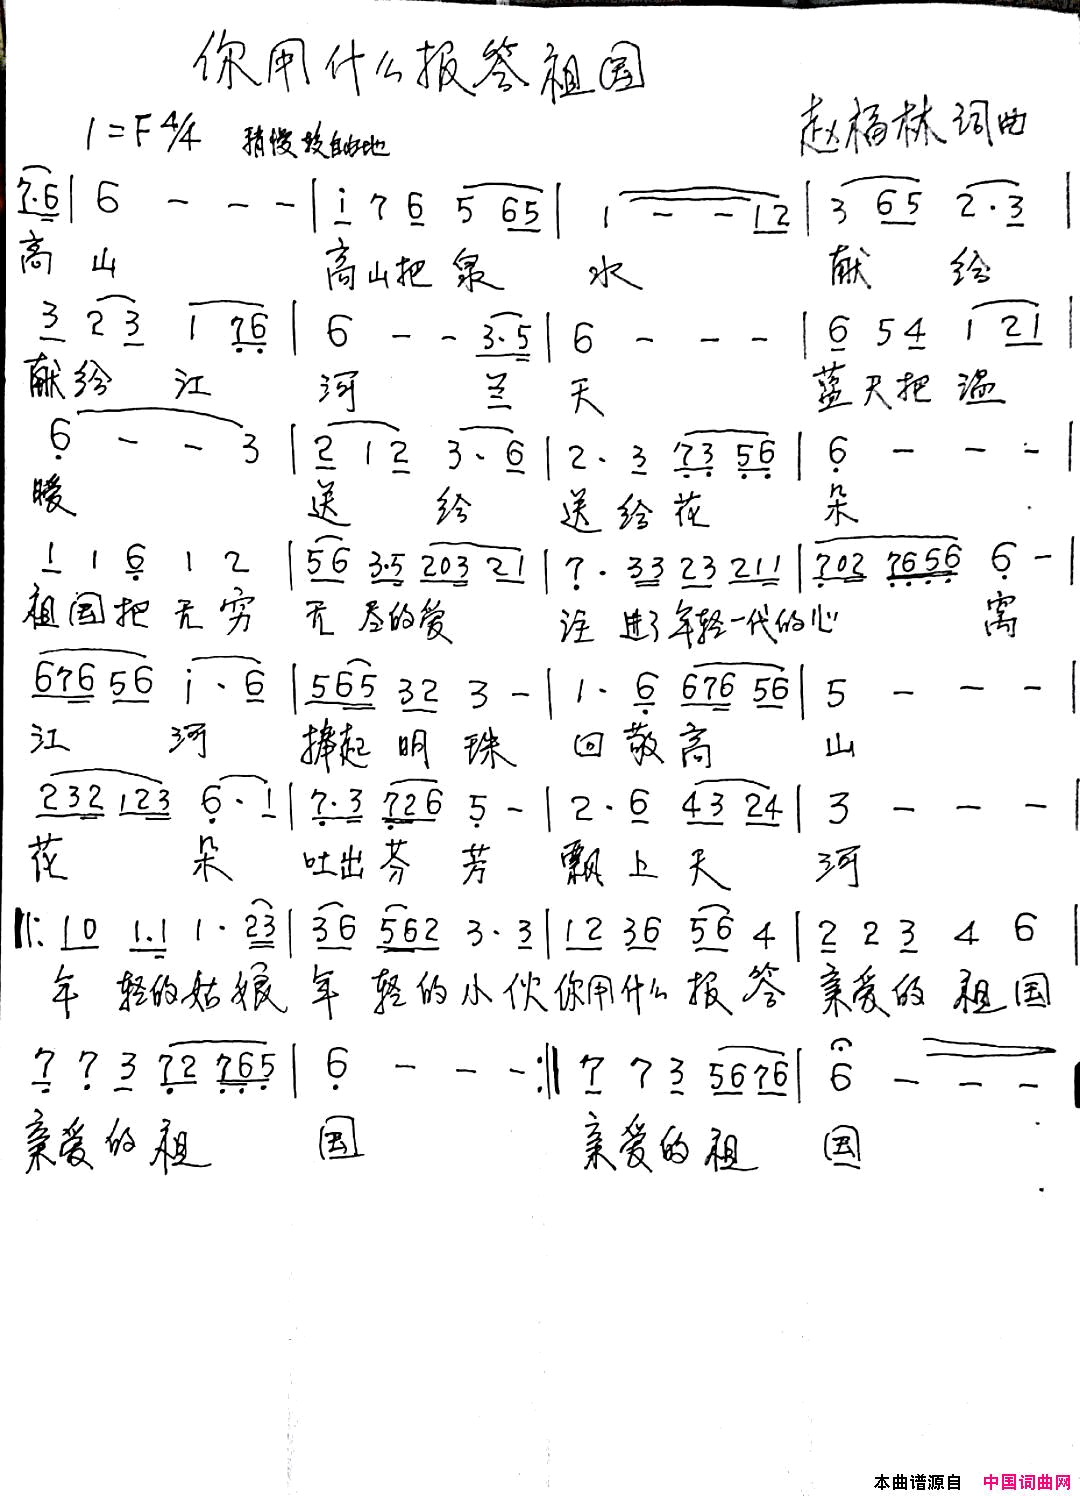 你用什么报答祖国
1=F 4/4 稍慢较自由地
赵福林 词曲
7·6 | 6 - - - | i 7 6 5 65 | 1 - - 12 | 3 65 2·3 |
高山 高山把泉水 献给
3 2 3 1 76 | 6 - - 3·5 | 6 - - - | 6 5 4 1 21 |
献给江河 兰天 蓝天把温
6 - - 3 | 2 1 2 3·6 | 2·3 73 56 | 6 - - - |
暖 送给 送给花朵
1 1 6 1 2 | 56 3·5 203 21 | 7·33 23 211 | 702 7656 6 - |
祖国把无穷 无尽的爱 注进了年轻一代的心窝
676 56 i·6 | 565 32 3 - | 1·6 676 56 | 5 - - - |
江河 捧起明珠 回敬高山
232 123 6·1 | 7·3 726 5 - | 2·6 43 24 | 3 - - - |
花朵 吐出芬芳 飘上天河
‖: 10 1·1 1·23 | 36 562 3·3 | 12 36 56 4 | 2 2 3 4 6 |
年轻的姑娘 年轻的小伙你用什么报答 亲爱的祖国
7 7 3 72 765 | 6 - - - :‖ 7 7 3 56 76 | 6 - - -
亲爱的祖国 亲爱的祖国
本曲谱源自 中国词曲网